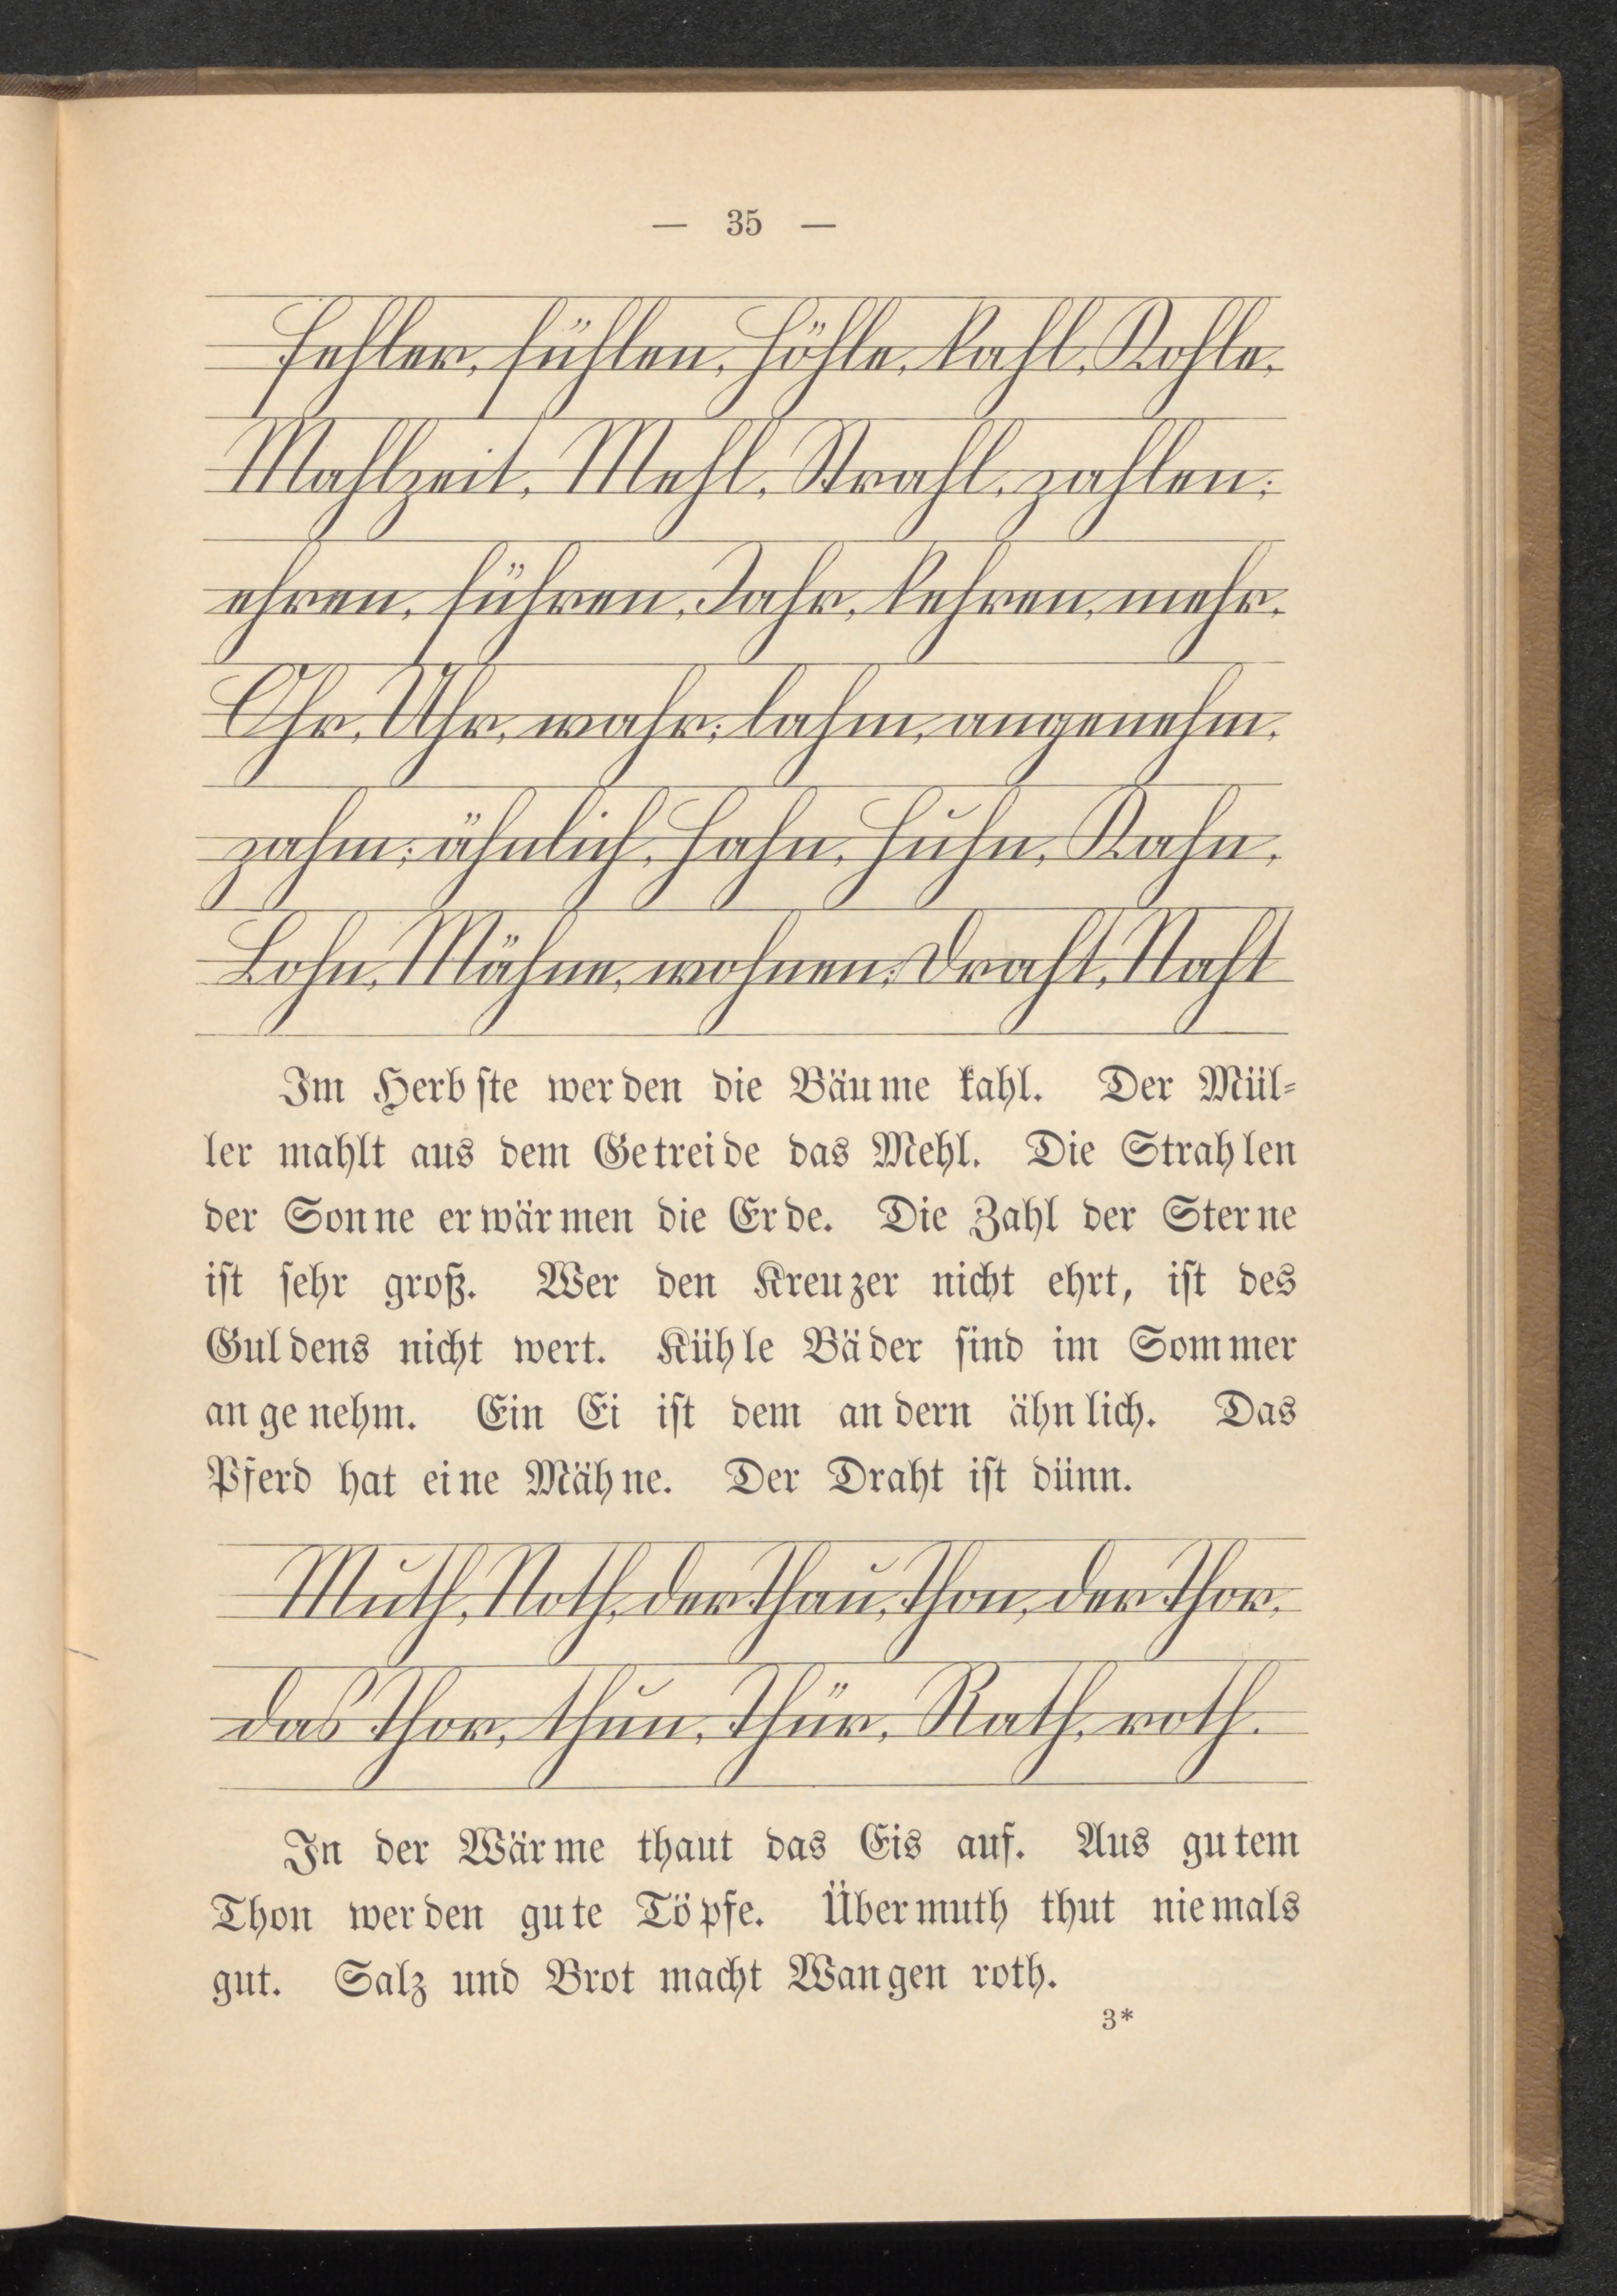 — 35 —
Fehler, fühlen, Höhle, kahl, Kohle,
Mahlzeit, Mehl, Strahl, zahlen;
ehren, führen, Jahr, kehren, mehr,
Ohr, Uhr, wahr; lahm, angenehm,
zahm; ähnlich, Hahn, Huhn, Kahn,
Lohn, Mähne, wohnen; Draht, Naht
Im Herb ſte wer den die Bäu me kahl. Der Mül-
ler mahlt aus dem Ge trei de das Mehl. Die Strah len
der Son ne er wär men die Er de. Die Zahl der Ster ne
iſt ſehr groß. Wer den Kreu zer nicht ehrt, iſt des
Gul dens nicht wert. Küh le Bä der ſind im Som mer
an ge nehm. Ein Ei iſt dem an dern ähn lich. Das
Pferd hat ei ne Mäh ne. Der Draht iſt dünn.
Muth, Noth, der Thau, Thon, der Thor,
das Thor, thun, Thür, Rath, roth.
In der Wär me thaut das Eis auf. Aus gu tem
Thon wer den gu te Tö pfe. Über muth thut nie mals
gut. Salz und Brot macht Wan gen roth.
3*